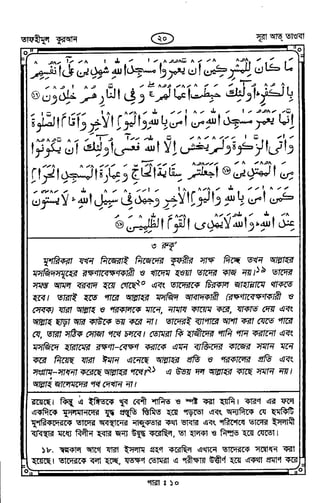 তাফহীমুল কুরআন
২০
সূরা আত্ তাওবা
مَا كَانَ لِلْمُشْرِكِينَ أَنْ يَعْمُرُوا مَسٰجِدَ اللهِ شٰهِدِينَ عَلٰى أَنْفُسِهِمْ
بِالْكُفْرِ أُولٰئِكَ حَبِطَتْ أَعْمَالُهُمْ وَفِي النَّارِ هُمْ خٰلِدُونَ ⑰
إِنَّمَا يَعْمُرُ مَسٰجِدَ اللهِ مَنْ آمَنَ بِاللهِ وَالْيَوْمِ الْاٰخِرِ وَأَقَامَ الصَّلٰوةَ
وَآتَى الزَّكٰوةَ وَلَمْ يَخْشَ إِلَّا اللهَ فَعَسٰى أُولٰئِكَ أَنْ يَكُونُوا
مِنَ الْمُهْتَدِينَ ⑱ أَجَعَلْتُمْ سِقَايَةَ الْحَاجِّ وَعِمَارَةَ الْمَسْجِدِ الْحَرَامِ
كَمَنْ آمَنَ بِاللهِ وَالْيَوْمِ الْاٰخِرِ وَجٰهَدَ فِي سَبِيلِ اللهِ لَا يَسْتَوُونَ
عِنْدَ اللهِ وَاللهُ لَا يَهْدِي الْقَوْمَ الظّٰلِمِينَ ⑲
৩ রুকূ'
মুশরিকরা যখন নিজেরাই নিজেদের কুফরীর সাক্ষ দিচ্ছে তখন আল্লাহর
মসজিদসমূহের রক্ষণাবেক্ষণকারী ও খাদেম হওয়া তাদের কাজ নয়।১৯ তাদের
সমস্ত আমল বরবাদ হয়ে গেছে২০ এবং তাদেরকে চিরকাল জাহান্নামে থাকতে
হবে। তারাই হতে পারে আল্লাহর মসজিদ আবাদকারী (রক্ষণাবেক্ষণকারী ও
সেবক) যারা আল্লাহ ও পরকালকে মানে, নামায কায়েম করে, যাকাত দেয় এবং
আল্লাহ ছাড়া আর কাউকে ভয় করে না। তাদেরই ব্যাপারে আশা করা যেতে পারে
যে, তারা সঠিক সোজা পথে চলবে। তোমরা কি হাজীদের পানি পান করানো এবং
মসজিদে হারামের রক্ষণা-বেক্ষণ করাকে এমন ব্যক্তিদের কাজের সমান মনে
করে নিয়েছ যারা ঈমান এনেছে আল্লাহর প্রতি ও পরকালের প্রতি এবং
সংগ্রাম-সাধনা করেছে আল্লাহর পথে?২১ এ উভয় দল আল্লাহর কাছে সমান নয়।
আল্লাহ জালেমদের পথ দেখান না।
রয়েছে। কিন্তু এ ইঙ্গিতকে খুব বেশী শাণিত ও স্পষ্ট করা হয়নি। কারণ এর ফলে
একদিকে মুসলমানদের যুদ্ধ প্রস্তুতি স্তিমিত হয়ে পড়তো এবং অন্যদিকে যে হুমকিটি
মুশরিকদেরকে তাদের অবস্থানের নাজুকতার কথা ভাবার এবং পরিশেষে তাদের ইসলামী
ব্যবস্থার মধ্যে বিলীন হবার জন্য উদ্বুদ্ধ করেছিল, তা হালকা ও নিষ্প্রভ হয়ে যেতো।
১৮. স্বল্পকাল আগে যারা ইসলাম গ্রহণ করেছিল এখানে তাদেরকে সম্বোধন করা
হয়েছে। তাদেরকে বলা হচ্ছে, যতক্ষণ তোমরা এ পরীক্ষায় উত্তীর্ণ হয়ে একথা প্রমাণ করে
পারা : ১০